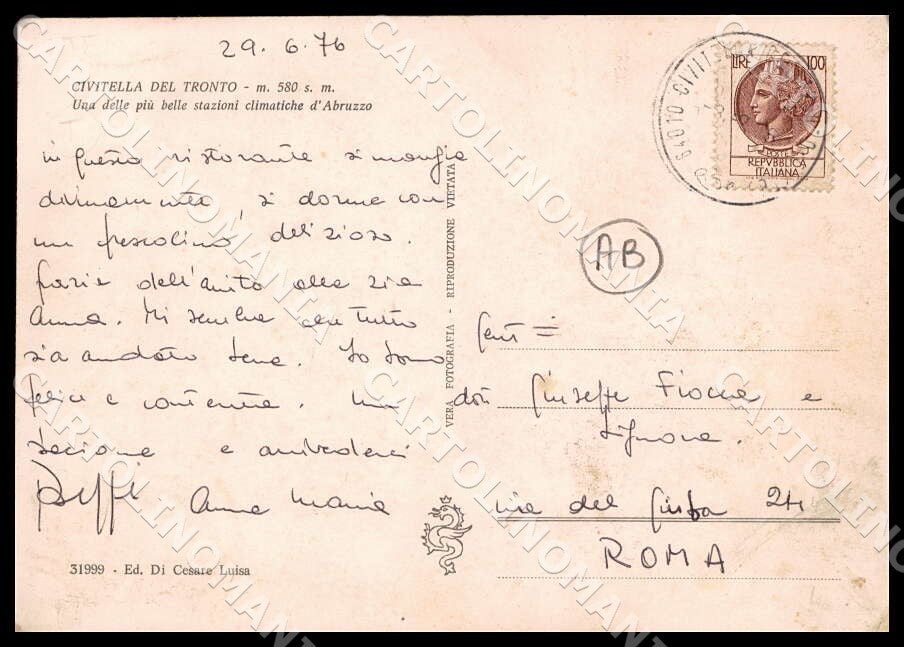 29.6.76
CIVITELLA DEL TRONTO - m. 580 s. m.
Una delle più belle stazioni climatiche d'Abruzzo
in questo ristorante si mangia
divinamente, si dorme con
un frescolino delizioso.
grazie dell'invito alla zia
Anna. Mi sembra che tutto
sia andato bene. Io sono
felice e contenta. Un
bacione e arrivederci
Anna Maria
31999 - Ed. Di Cesare Luisa
VERA FOTOGRAFIA - RIPRODUZIONE VIETATA
LIRE 100
REPVBBLICA
ITALIANA
64010 CIVITELLA
AB
Gent
dott Giuseppe Fiocca e
Signora.
via del 24
ROMA
CARTOLINOMANIA